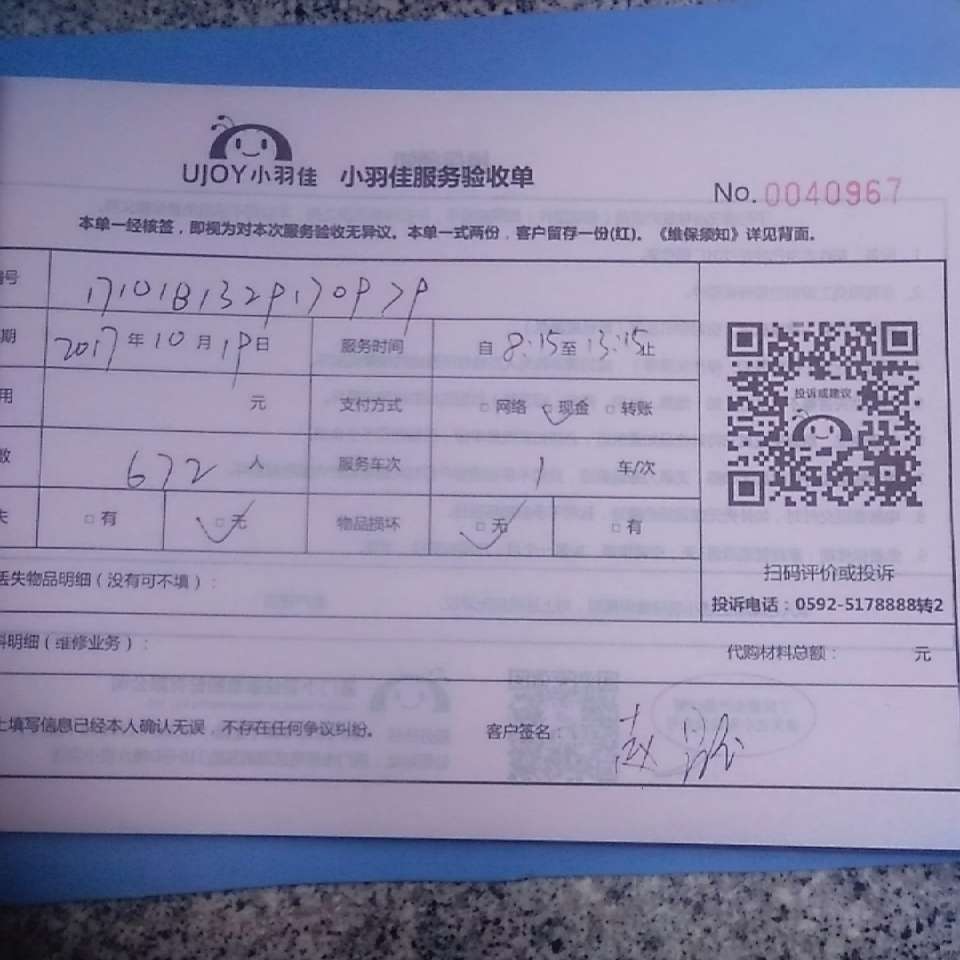 UJOY小羽佳 小羽佳服务验收单
No. 0040967
本单一经核签，即视为对本次服务验收无异议。本单一式两份，客户留存一份(红)。《维保须知》详见背面。
号
期 2017年10月19日 服务时间 自8:15至13:15止
用 元 支付方式 □网络 □现金 □转账
数 672 人 服务车次 1 车/次
失 □有 □无 物品损坏 □无 □有
投诉或建议
扫码评价或投诉
投诉电话：0592-5178888转2
丢失物品明细（没有可不填）：
料明细（维修业务）： 代购材料总额： 元
上填写信息已经本人确认无误，不存在任何争议纠纷。 客户签名：赵